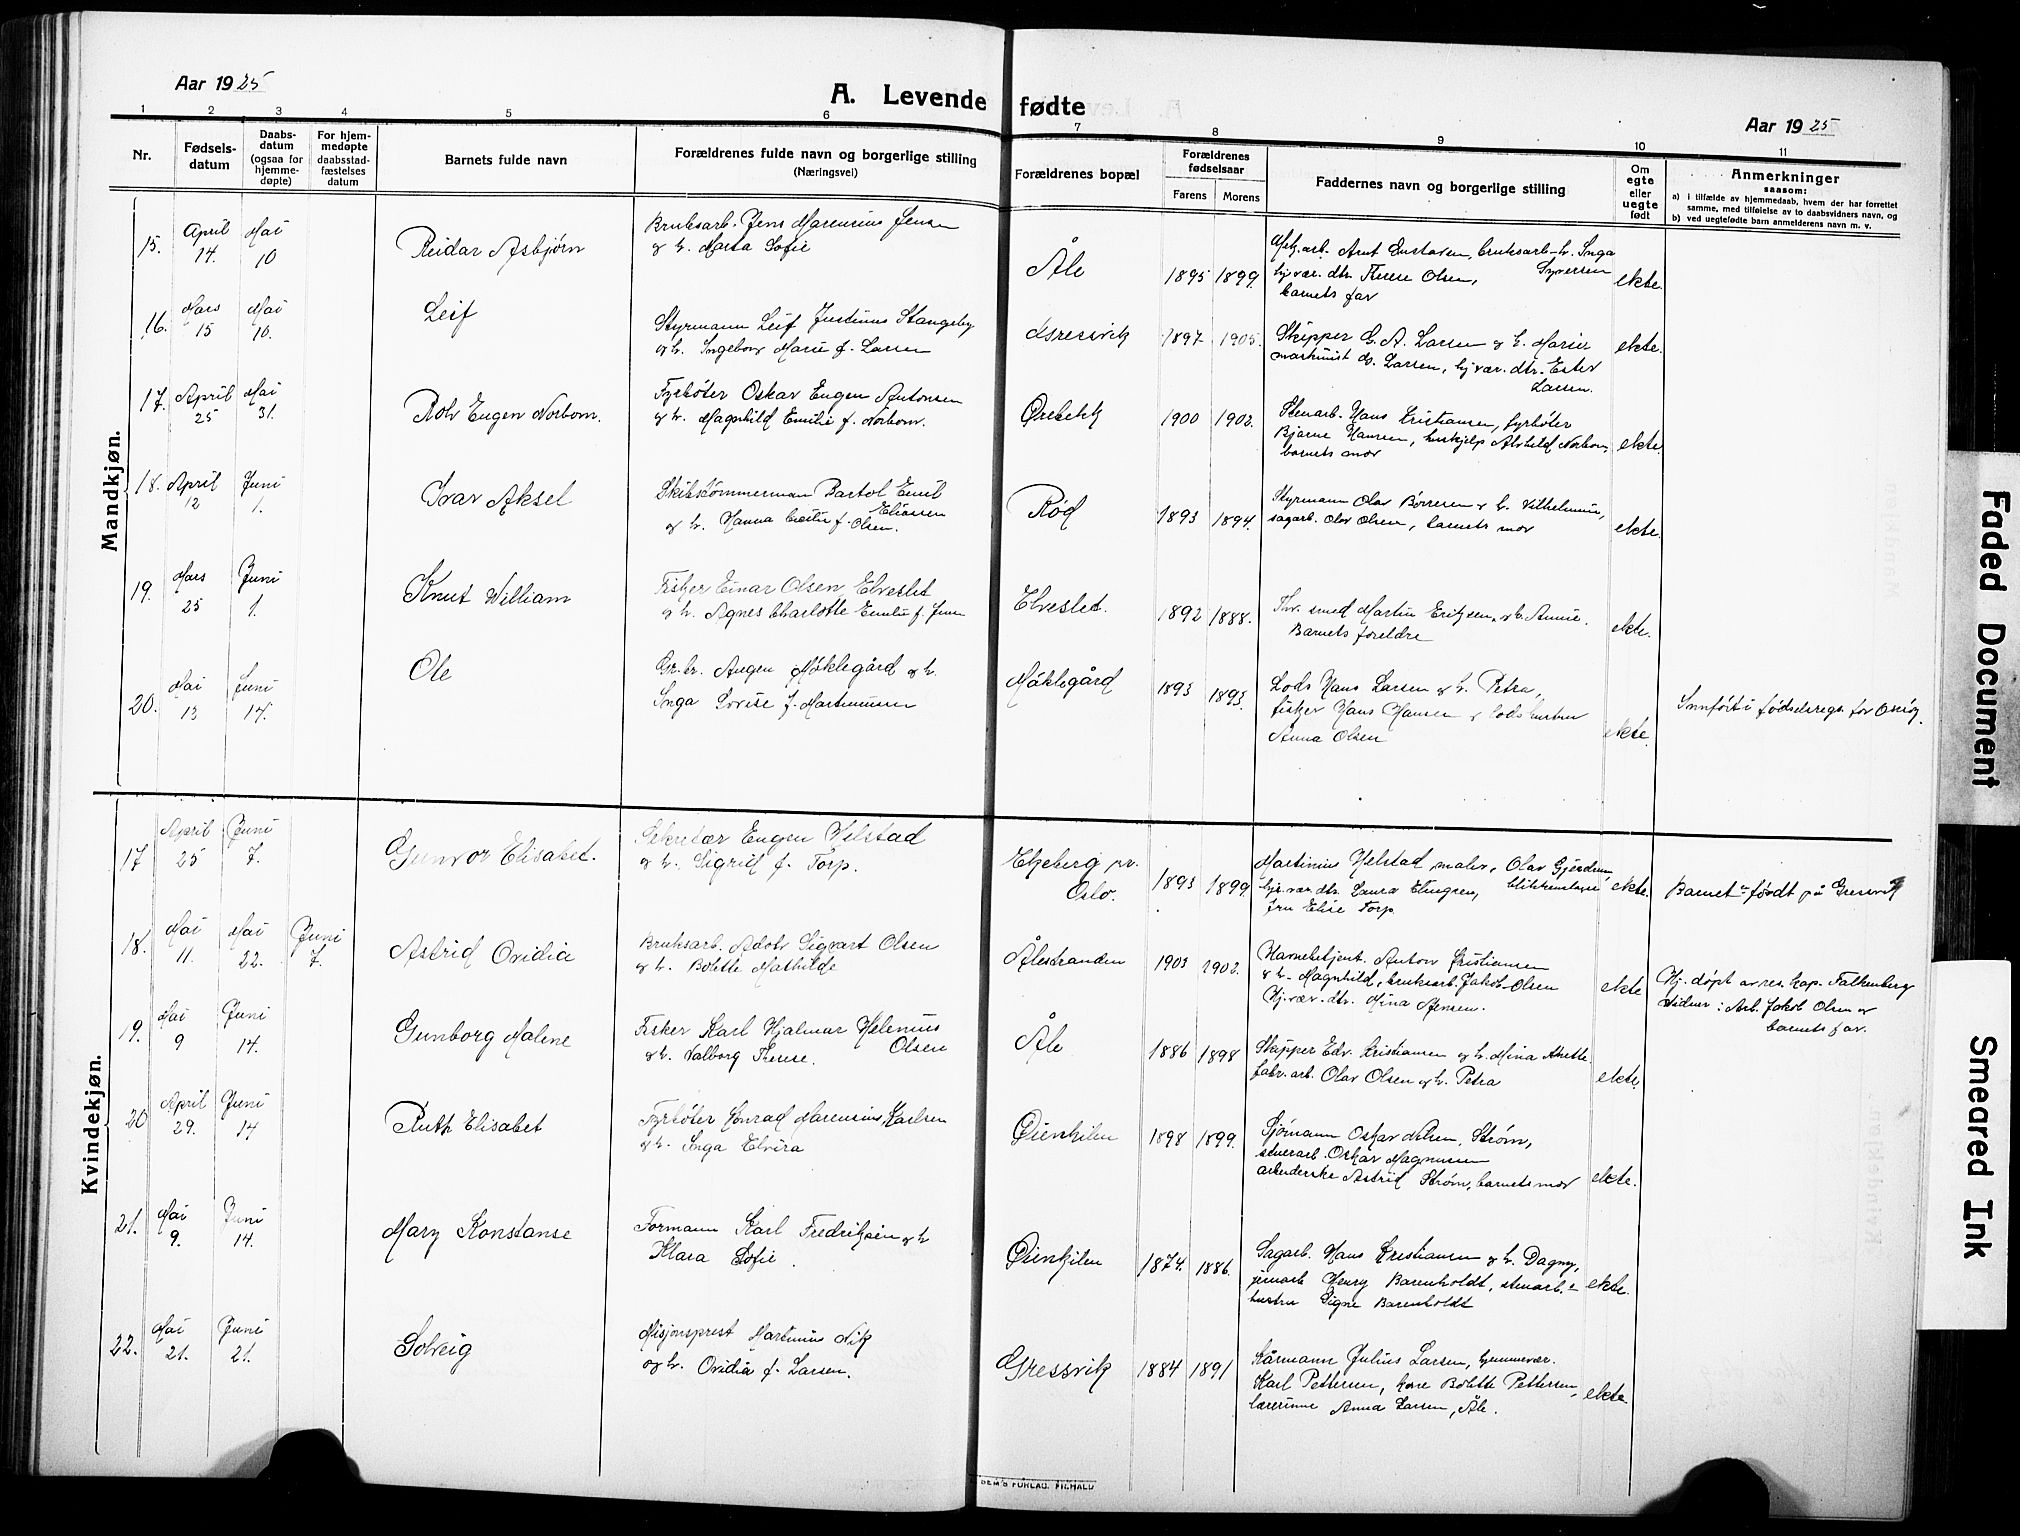 Aar 1925
A. Levende fødte
Aar 1925
1 2 3 4 5 6 7 8 9 10 11
Nr.
Fødsels-
datum
Daabs-
datum
(ogsaa for
hjemme-
døpte)
For hjem-
medøpte
daabsstad-
fæstelses
datum
Barnets fulde navn
Forældrenes fulde navn og borgerlige stilling
(Næringsvei)
Forældrenes bopæl
Forældrenes
fødselsaar
Farens Morens
Faddernes navn og borgerlige stilling
Om
egte
eller
uegte
født
Anmerkninger
saasom:
a) i tilfælde av hjemmedaab, hvem der har forrettet
samme, med tilføielse av to daabsvidners navn, og
b) ved uegtefødte barn anmelderens navn m. v.
Mandkjøn.
15. April 14. Mai 10 Reidar Asbjørn
Bruksarb. Jens Marensius Jensen
og h. Marta Sofie
Åle 1895 1899.
arb. Arnt Gustavsen, bruksarb.-h. Inga
Syversen
hj.vær. dtr. Therese Olsen,
barnets far
ekte.
16. Mars 15 Mai 10. Leif
Styrmann Leif Justinus Stangeby
og h. Ingeborg Marie f. Larsen
Gressvik 1897 1905.
Skipper E. A. Larsen og h. Marie,
maskinist O. Larsen, hj.vær. dtr. Ester
Larsen.
ekte.
17. April 25 Mai 31. Rolv Eugen Norbom.
Fyrbøter Oskar Eugen Antonsen
og h. Magnhild Emilie f. Norbom.
Ørebekk 1900 1902.
Stenarb. Hans Kristiansen, fyrbøter
Bjarne Hansen, hushjelp Alvhild Norbom,
barnets mor
ekte.
18. April 12 Juni 1. Ivar Aksel
Skibstømmermann Bartol Emil
Eliassen
og h. Hanna f. Olsen.
Rød 1893 1894.
Styrmann Olav Børresen og h. Vilhelmine,
sagarb. Olav Olsen, barnets mor
ekte.
19. Mars 25 Juni 1. Knut William
Fisker Einar Olsen Elveslet
og h. Agnes Charlotte Emilie f. Jensen
Elveslet. 1892 1888.
smed Martin Eriksen og h. Annie.
Barnets foreldre
ekte.
20. Mai 13 Juni 14. Ole
Gr.br. Augen Møklegård og h.
Inga Lovise f. Martinussen
Møklegård 1893 1893.
Lods Hans Larsen og h. Petra,
fisker Hans Hansen og lodshustru
Anna Olsen
ekte.
Innført i fødselsregs. for Onsøy.
Kvindekjøn.
17 April 25 Juni 7. Gunvor Elisabet.
Sekretær Eugen Helstad
og h. Sigrid f. Torp.
Ekeberg pr.
Oslo. 1893 1899
Martinius Helstad, maler, Olav Gjerdrum,
blikkenslager
hj.vær. dtr. Laura Elingsen,
fru Elise Torp.
ekte.
Barnet er født på Gressvik
18. Mai 11. Mai 22. Juni 7. Astrid Ovidia
Bruksarb. Adolv Sigvart Olsen
og h. Bolette Mathilde
Ålestranden 1903 1902.
Havnebetjent Anton Kristiansen
og h. Magnhild, bruksarb. Jakob Olsen
Hj.vær. dtr. Mina Stensen.
ekte
Hj. døpt av res. kap. Falkenberg
Vidner: Arb. Jakob Olsen og
barnets far.
19. Mai 9 Juni 14. Gunborg Malene
Fisker Karl Hjalmar Helenius
Olsen
og h. Valborg Therese.
Åle 1886 1898
Skipper Edv. Kristiansen og h. Mina Anette.
fabr. arb. Olav Olsen og h. Petra
ekte
20 April 29. Juni 14 Ruth Elisabet
Fyrbøter Konrad Marensius Karlsen
og h. Inga Elvira
Øienkilen 1898 1899.
Sjømann Oskar Nilsen, Strøm,
stenarb. Oskar Magnussen
arbeiderske Astrid Strøm, barnets mor
ekte.
21. Mai 9. Juni 14. Mary Konstanse
Formann Karl Fredriksen og h
Klara Sofie.
Øienkilen 1874. 1886.
Sagarb. Hans Kristiansen og h. Dagny,
jernarb. Henry Barenholdt, stenarb.-
hustru Signe Barenholdt
ekte.
22. Mai 21. Juni 21. Solveig
Misjonsprest Martinius Vik
og h. Ovidia f. Larsen.
Gressvik 1884 1891
Kårmann Julius Larsen, hjemmevær.
Karl Pettersen, kone Bolette Pettersen,
lærerinne Anna Larsen, Åle.
ekte
Faded Document
Smeared Ink